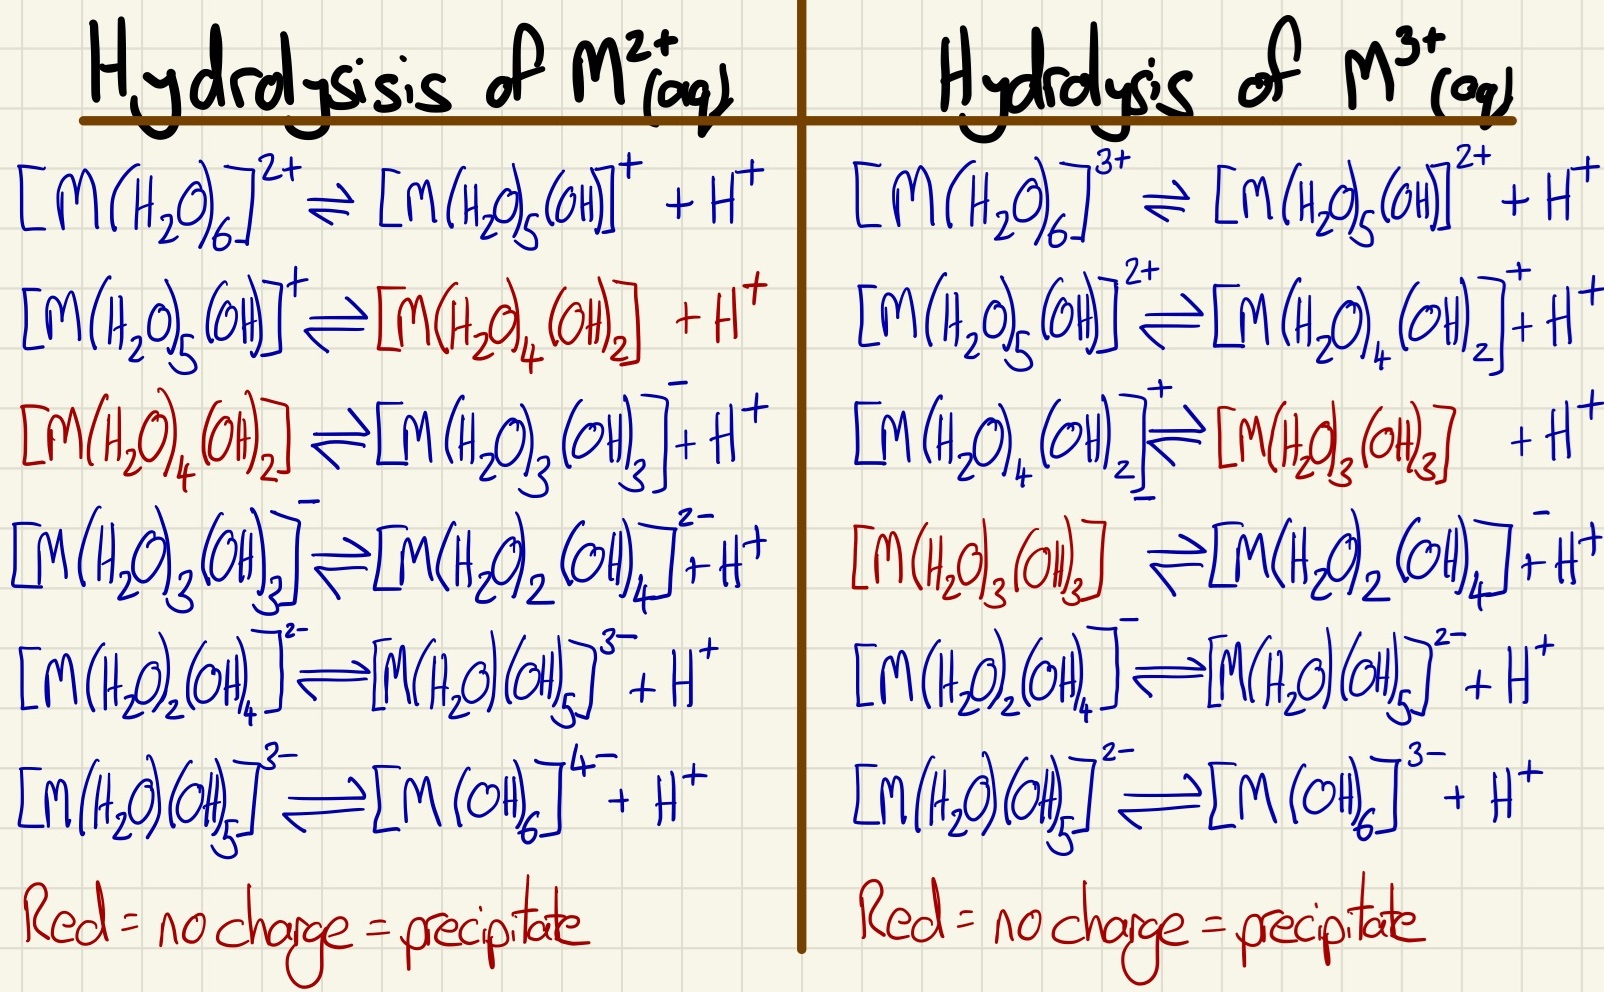 Hydrolysisis of M²⁺(aq)
[M(H₂O)₆]²⁺ ⇌ [M(H₂O)₅(OH)]⁺ + H⁺
[M(H₂O)₅(OH)]⁺ ⇌ [M(H₂O)₄(OH)₂] + H⁺
[M(H₂O)₄(OH)₂] ⇌ [M(H₂O)₃(OH)₃]⁻ + H⁺
[M(H₂O)₃(OH)₃]⁻ ⇌ [M(H₂O)₂(OH)₄]²⁻ + H⁺
[M(H₂O)₂(OH)₄]²⁻ ⇌ [M(H₂O)(OH)₅]³⁻ + H⁺
[M(H₂O)(OH)₅]³⁻ ⇌ [M(OH)₆]⁴⁻ + H⁺
Red = no charge = precipitate
Hydrolysis of M³⁺(aq)
[M(H₂O)₆]³⁺ ⇌ [M(H₂O)₅(OH)]²⁺ + H⁺
[M(H₂O)₅(OH)]²⁺ ⇌ [M(H₂O)₄(OH)₂]⁺ + H⁺
[M(H₂O)₄(OH)₂]⁺ ⇌ [M(H₂O)₃(OH)₃] + H⁺
[M(H₂O)₃(OH)₃]⁻ ⇌ [M(H₂O)₂(OH)₄]⁻ + H⁺
[M(H₂O)₂(OH)₄]⁻ ⇌ [M(H₂O)(OH)₅]²⁻ + H⁺
[M(H₂O)(OH)₅]²⁻ ⇌ [M(OH)₆]³⁻ + H⁺
Red = no charge = precipitate